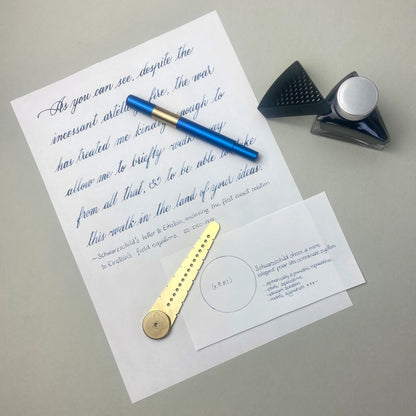 As you can see, despite the
incessant artillery fire, the war
has treated me kindly enough to
allow me to briefly walk away
from all that, & to be able to take
this walk in the land of your ideas.
~Schwarzschild's letter to Einstein, enclosing the first exact solution
to Einstein's field equations, 22-DEC-1915.
Schwarzschild chose a more
elegant polar like coordinate system
- spherically symmetric spacetime
- static spacetime
- vacuum solution
- metric signature